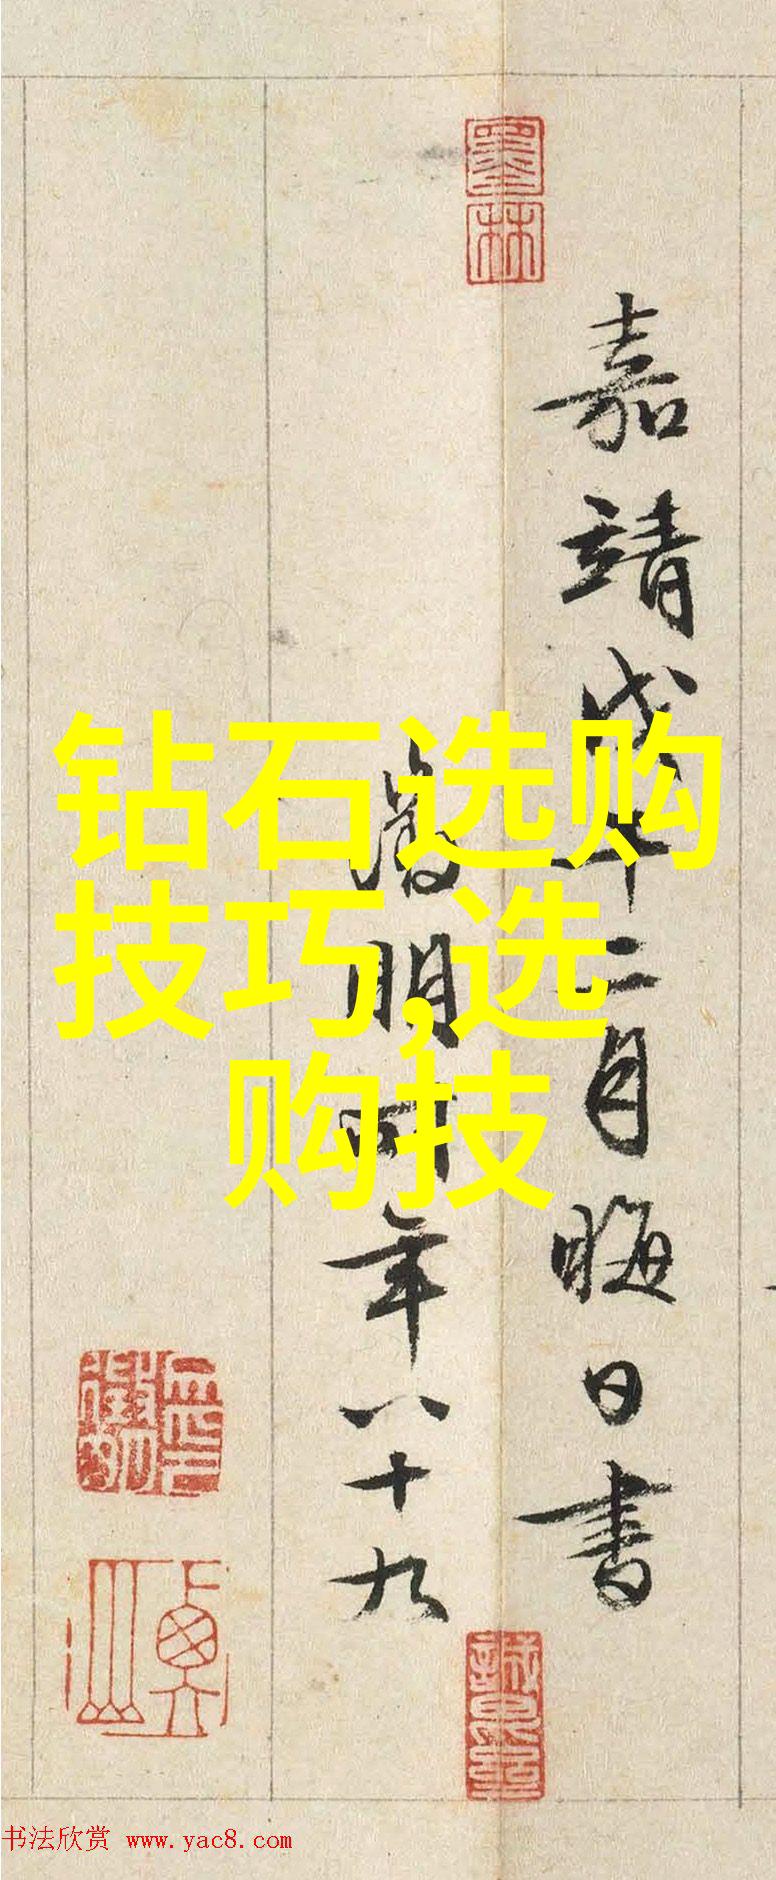 墨林
嘉靖戊午二月晦日書
徵明时年八十九
钻石选购
技巧,选
购技
书法欣赏 www.yac8.com